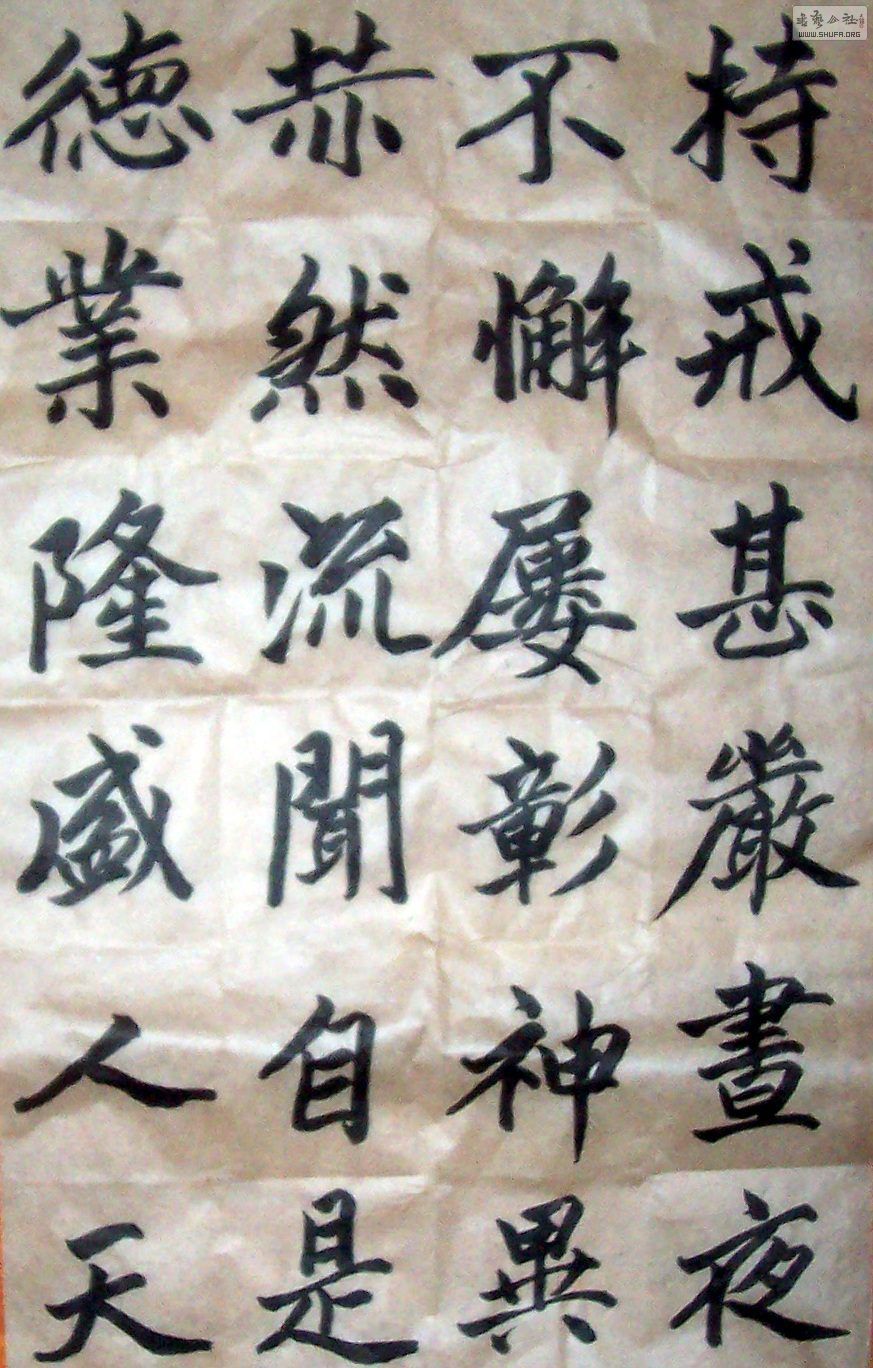 持戒甚嚴晝夜
不懈屢彰神異
赫然流聞自是
德業隆盛人天
書藝公社
WWW.SHUFA.ORG